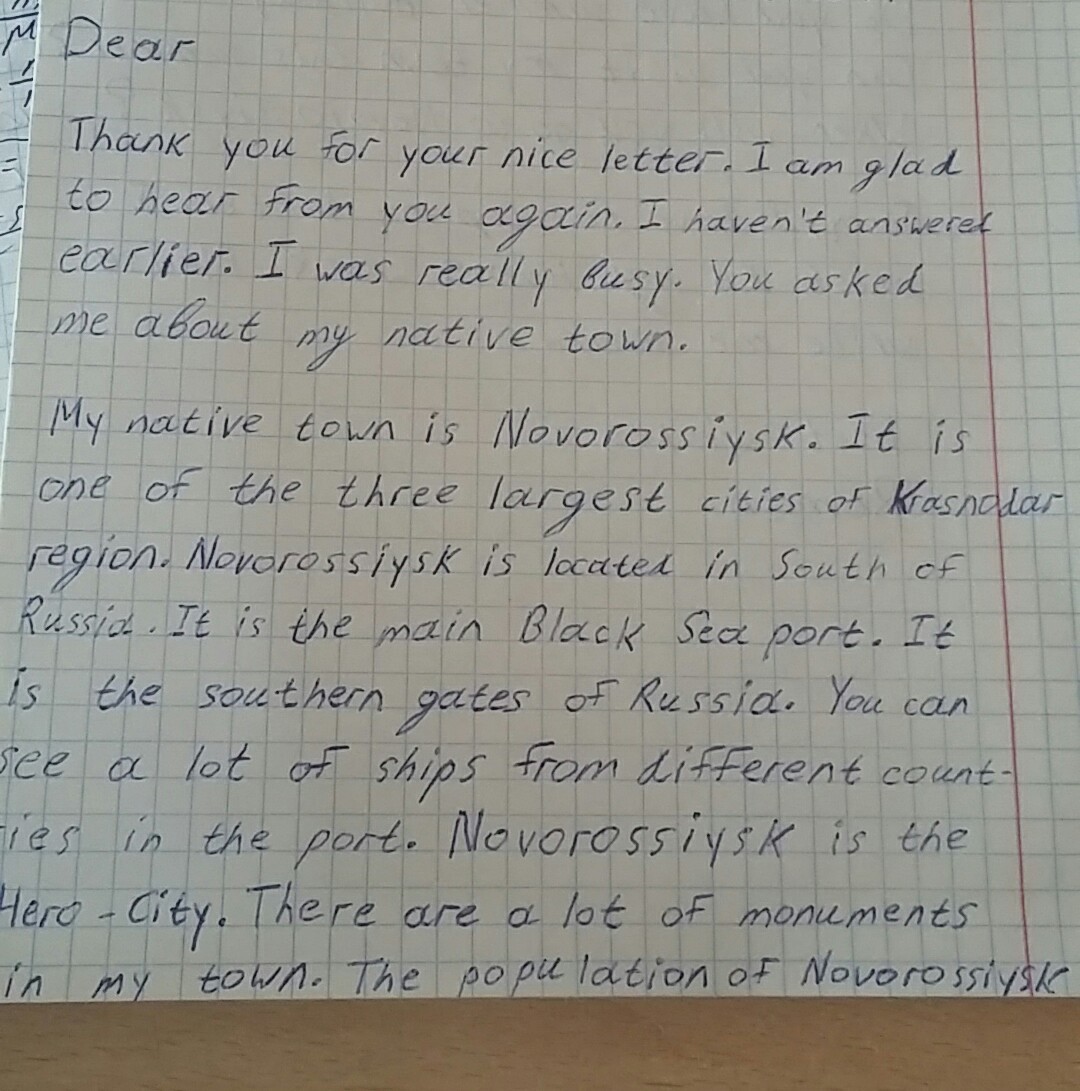 Dear
Thank you for your nice letter. I am glad
to hear from you again. I haven't answered
earlier. I was really busy. You asked
me about my native town.
My native town is Novorossiysk. It is
one of the three largest cities of Krasnodar
region. Novorossiysk is located in South of
Russia. It is the main Black Sea port. It
is the southern gates of Russia. You can
see a lot of ships from different count-
ries in the port. Novorossiysk is the
Hero-City. There are a lot of monuments
in my town. The population of Novorossiysk